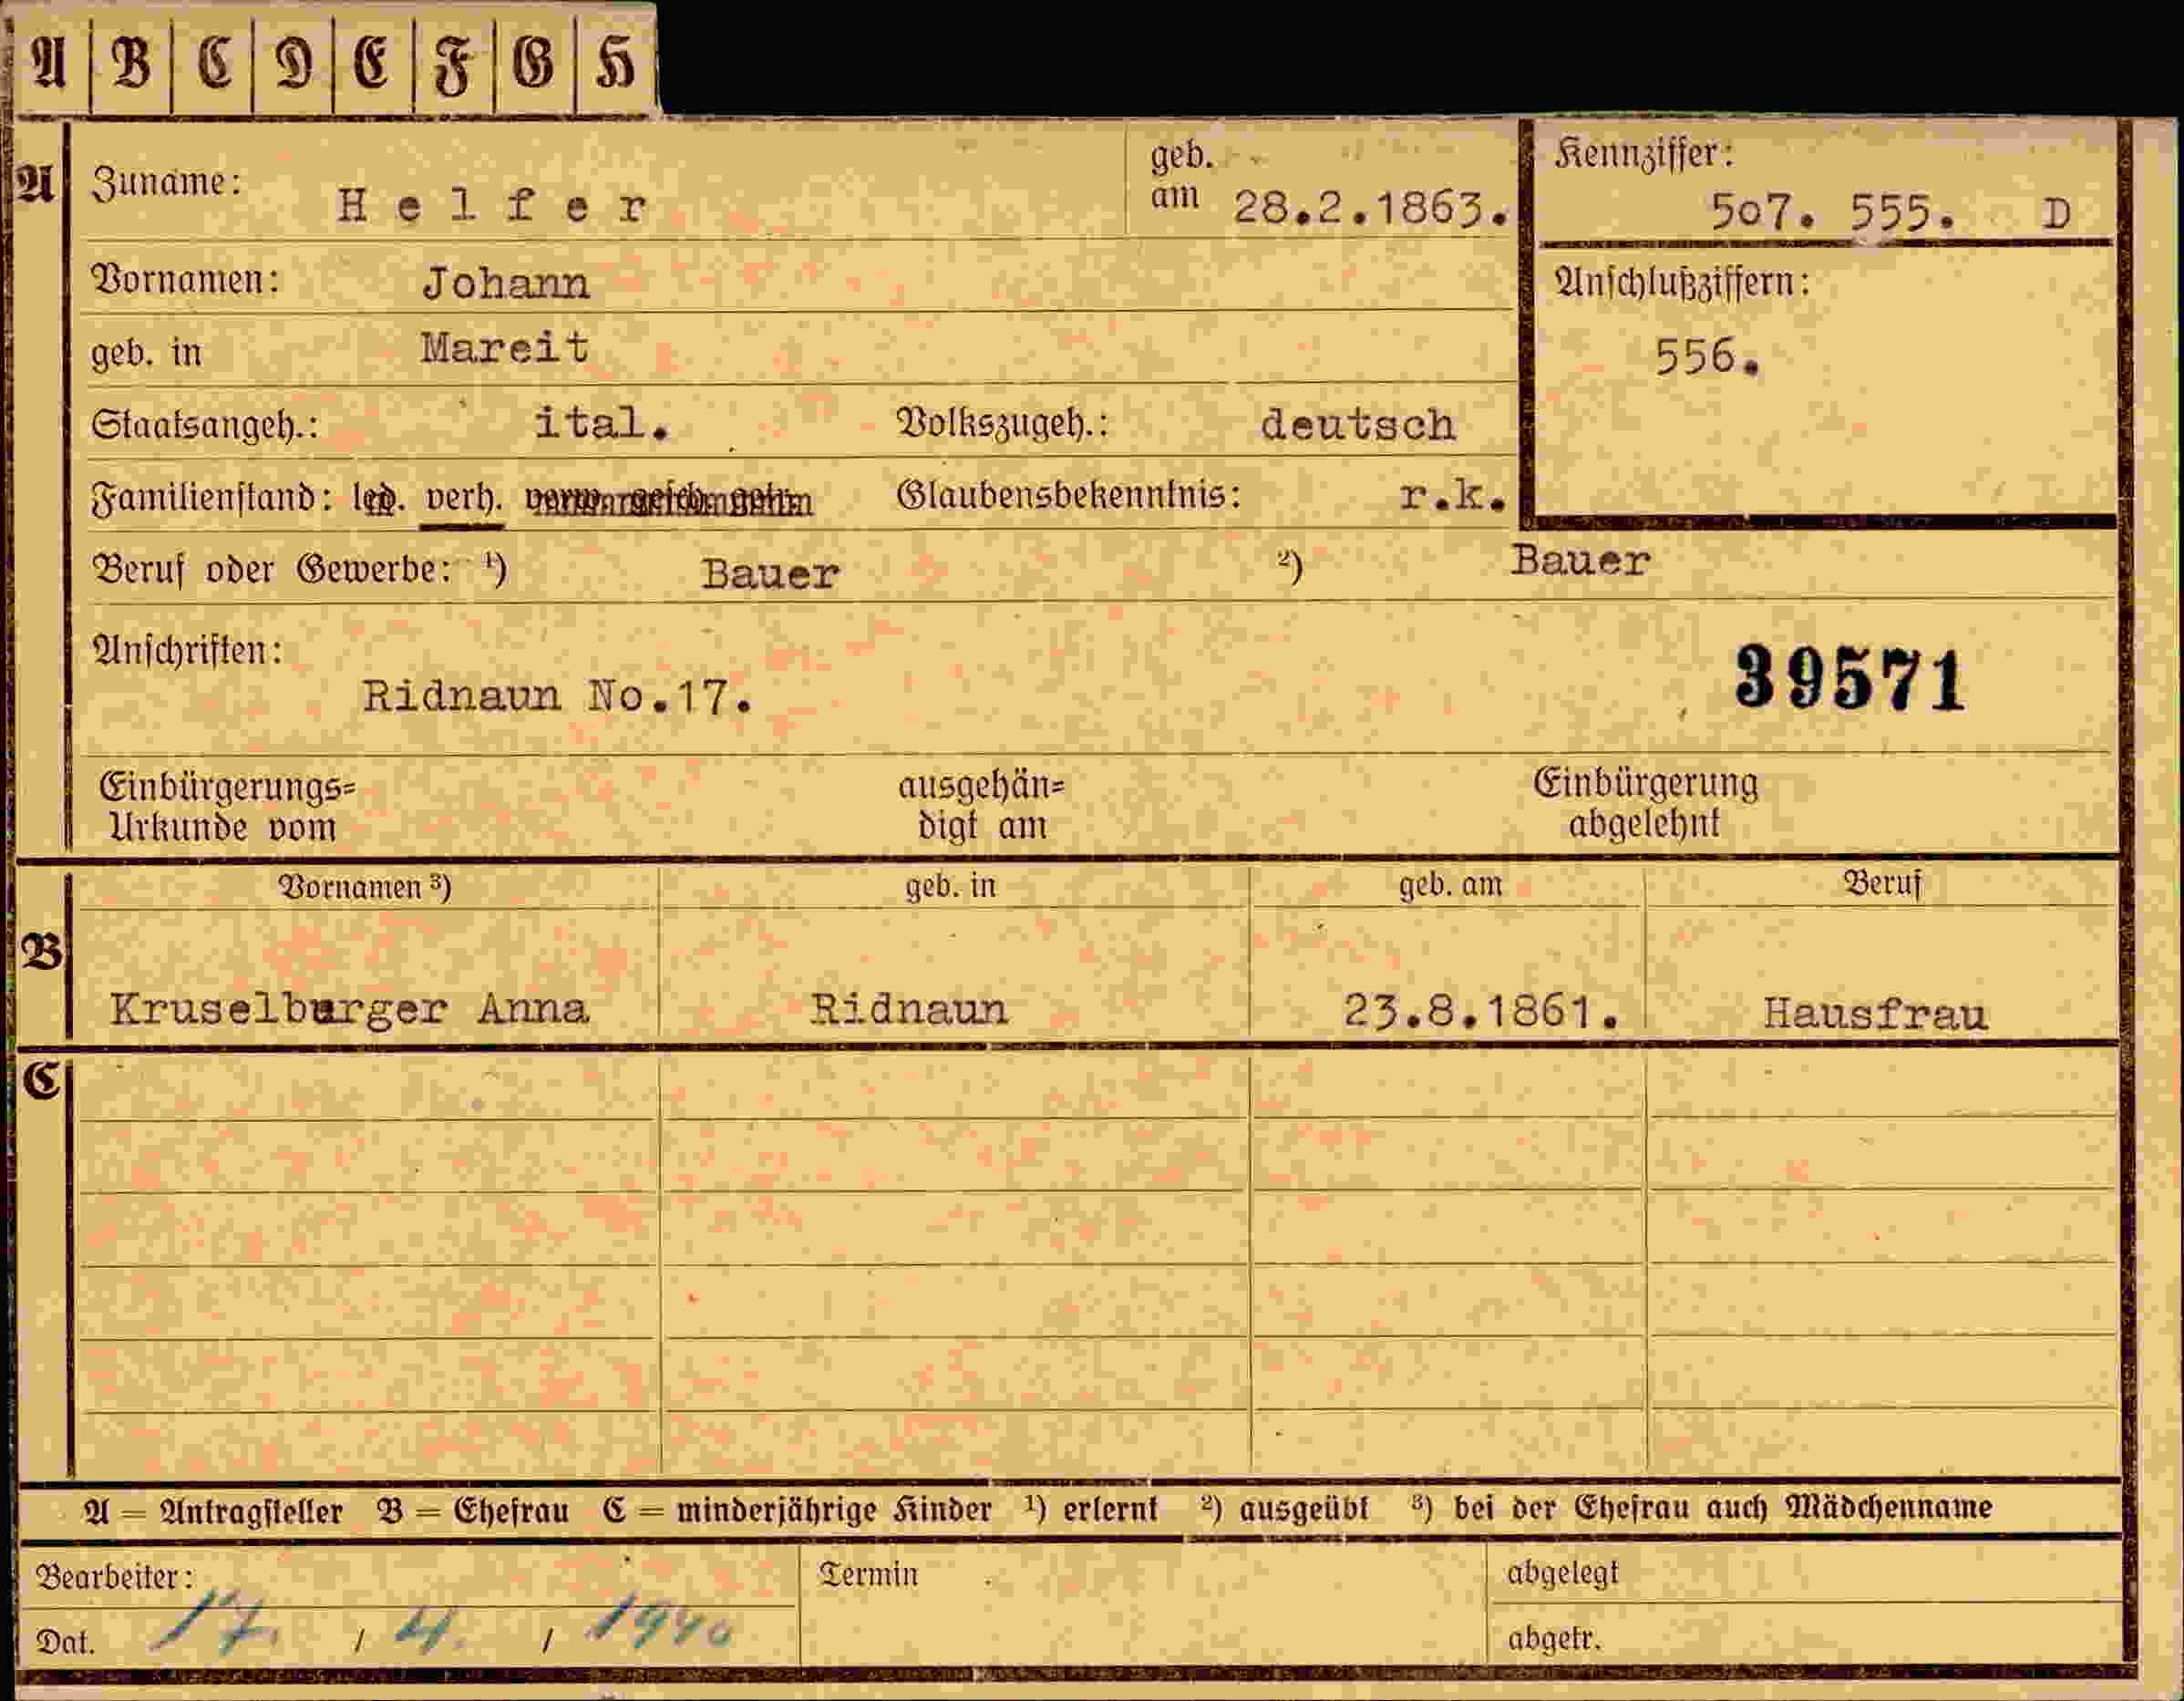 A B C D E F G H
A Zuname: Helfer geb. am 28.2.1863. Kennziffer: 507. 555. D
Vornamen: Johann Anschlußziffern:
geb. in Mareit 556.
Staatsangeh.: ital. Volkszugeh.: deutsch
Familienstand: led. verh. verw. gesch. getr. Glaubensbekenntnis: r.k.
Beruf oder Gewerbe: ¹) Bauer ²) Bauer
Anschriften:
Ridnaun No.17. 39571
Einbürgerungs= ausgehän= Einbürgerung
Urkunde vom digt am abgelehnt
Vornamen ³) geb. in geb. am Beruf
B
Kruselburger Anna Ridnaun 23.8.1861. Hausfrau
C
A = Antragsteller B = Ehefrau C = minderjährige Kinder ¹) erlernt ²) ausgeübt ³) bei der Ehefrau auch Mädchenname
Bearbeiter: Termin abgelegt
Dat. 17. / 4. / 1940 abgetr.